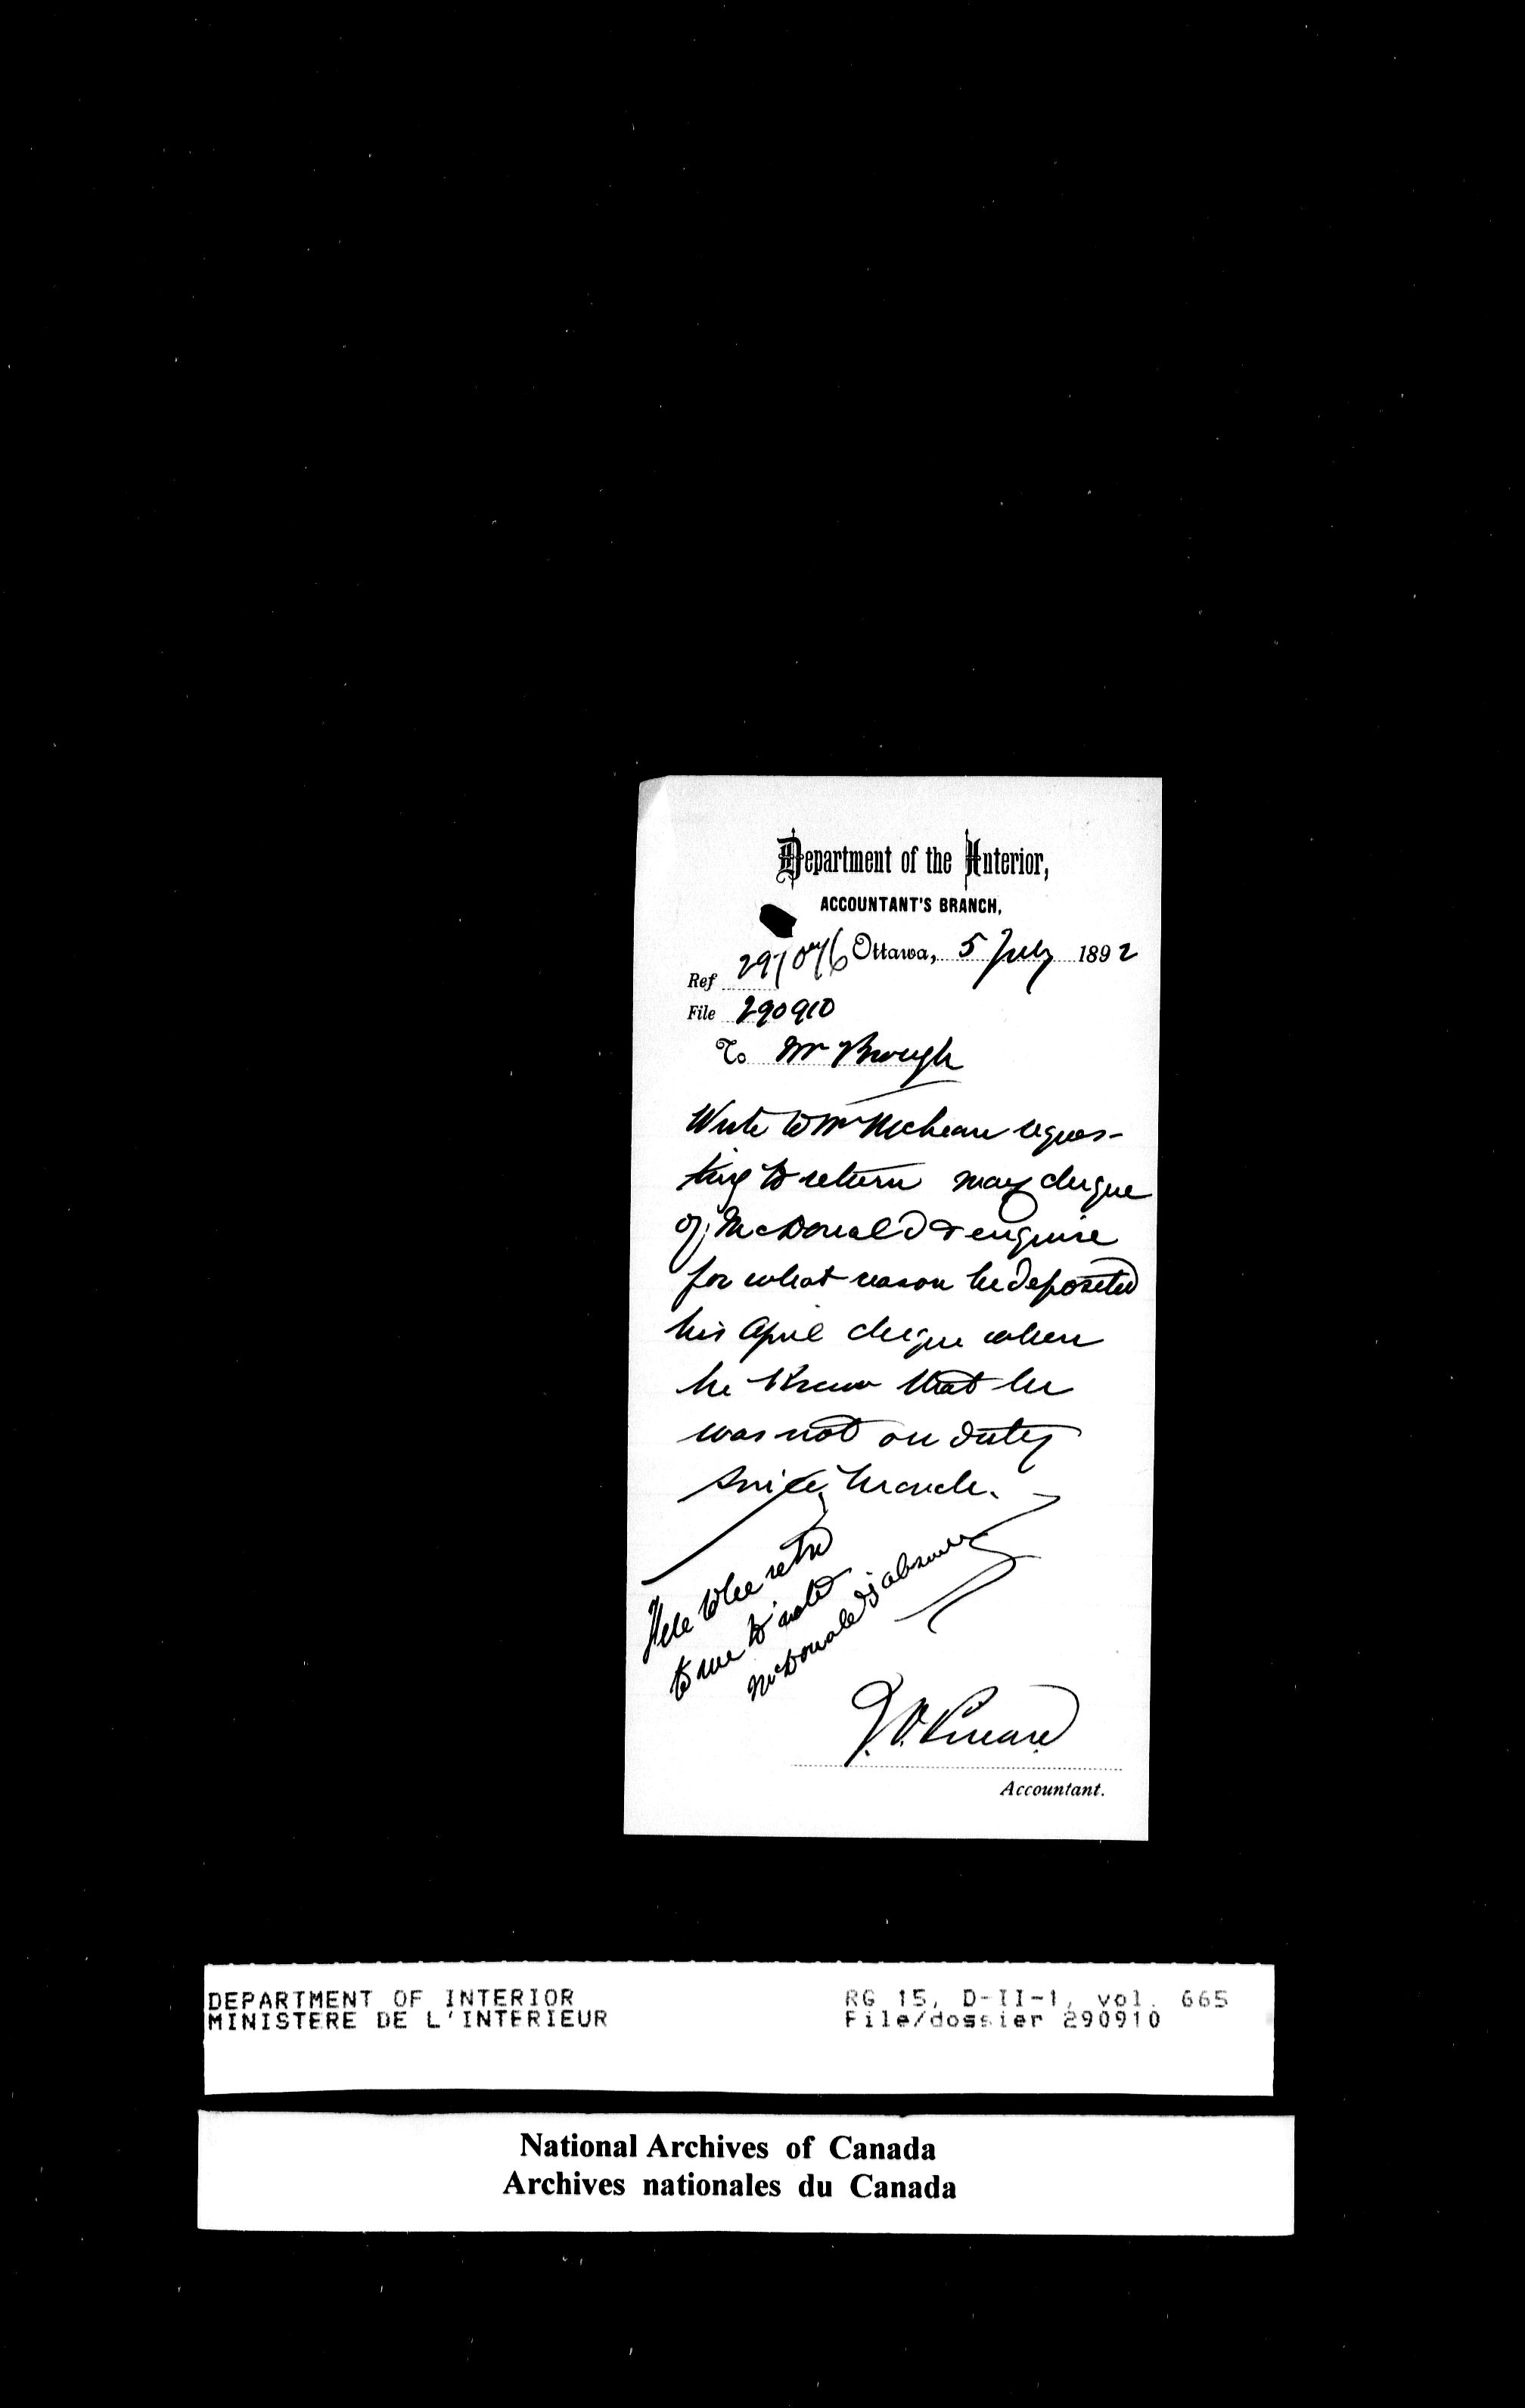 Department of the Interior,
ACCOUNTANT'S BRANCH,
Ottawa, 5 July 1892
Ref
File 290910
To Mr Brough
Write to Mr reques-
ting to return May cheque
of McDonald & enquire
for what reason he deposited
his April cheque when
he knew that he
was not on duty
since March.
File to be retd
to me to note
McDonald's absence
Accountant.
DEPARTMENT OF INTERIOR
MINISTERE DE L'INTERIEUR
RG 15, D-II-1, vol. 665
File/dossier 290910
National Archives of Canada
Archives nationales du Canada